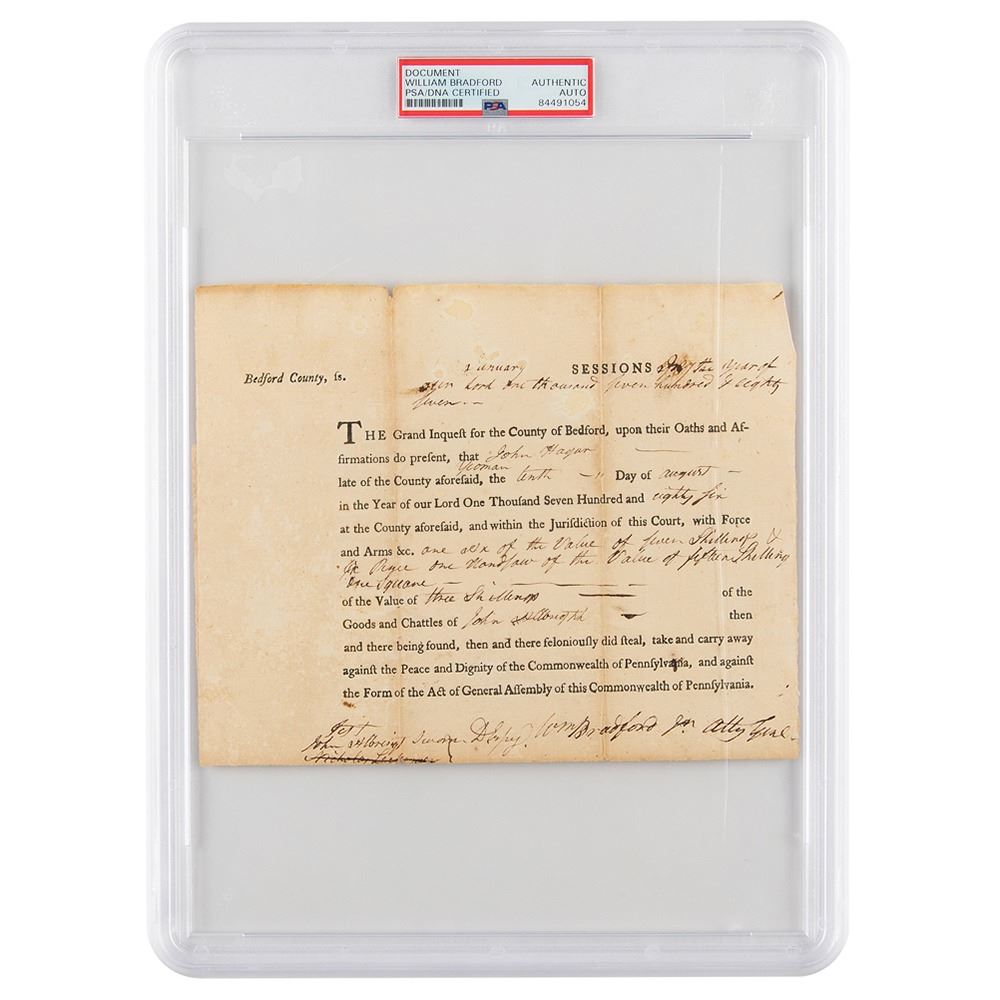 DOCUMENT
WILLIAM BRADFORD AUTHENTIC
PSA/DNA CERTIFIED AUTO
PSA 84491054
Bedford County, ſs.
January SESSIONS In the Year of
our Lord one thousand seven hundred & eighty
seven
THE Grand Inqueſt for the County of Bedford, upon their Oaths and Af-
firmations do preſent, that John Hagar
Yeoman
late of the County aforeſaid, the tenth Day of august
in the Year of our Lord One Thouſand Seven Hundred and eighty six
at the County aforeſaid, and within the Juriſdiction of this Court, with Force
and Arms &c. one ax of the Value of seven Shillings &
Six Pence one Handsaw of the Value of fifteen Shilling
One Square
of the Value of three Shillings of the
Goods and Chattles of John then
and there being found, then and there feloniouſly did ſteal, take and carry away
againſt the Peace and Dignity of the Commonwealth of Pennſylvania, and againſt
the Form of the Act of General Aſſembly of this Commonwealth of Pennſylvania.
Test
John sworn Wm Bradford Jun Atty Genl.
Nicholas